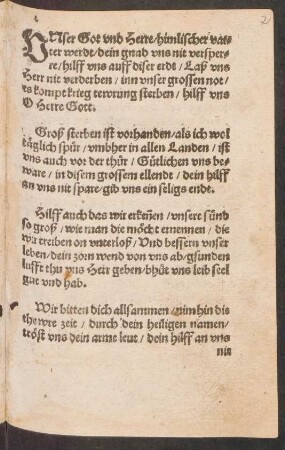 2
VNser Got vnd Herre / himlischer vat-
ter werde / dein gnad vns nit versper-
re / hilff vns auff diser erdt / Laß vns
Herr nit verderben / inn vnser grossen not /
es kompt krieg tewrung sterben / hilff vns
O Herre Gott.
Groß sterben ist vorhanden / als ich wol
täglich spür / vmbher in allen Landen / ist
vns auch vor der thür / Gütlichen vns be-
ware / in disem grossem ellende / dein hilff
an vns nit spare / gib vns ein seligs ende.
Hilff auch das wir erkeñen / vnsere sünd
so groß / wie man die möcht ernennen / die
wir treiben on vnterloß / Vnd bessern vnser
leben / dein zorn wend von vns ab / gsunden
lufft thu vns Herr geben / bhüt vns leib seel
gut vnd hab.
Wir bitten dich allsammen / nim hin die
thewre zeit / durch dein heiligen namen /
tröst vns dein arme leut / dein hilff an vns
nit